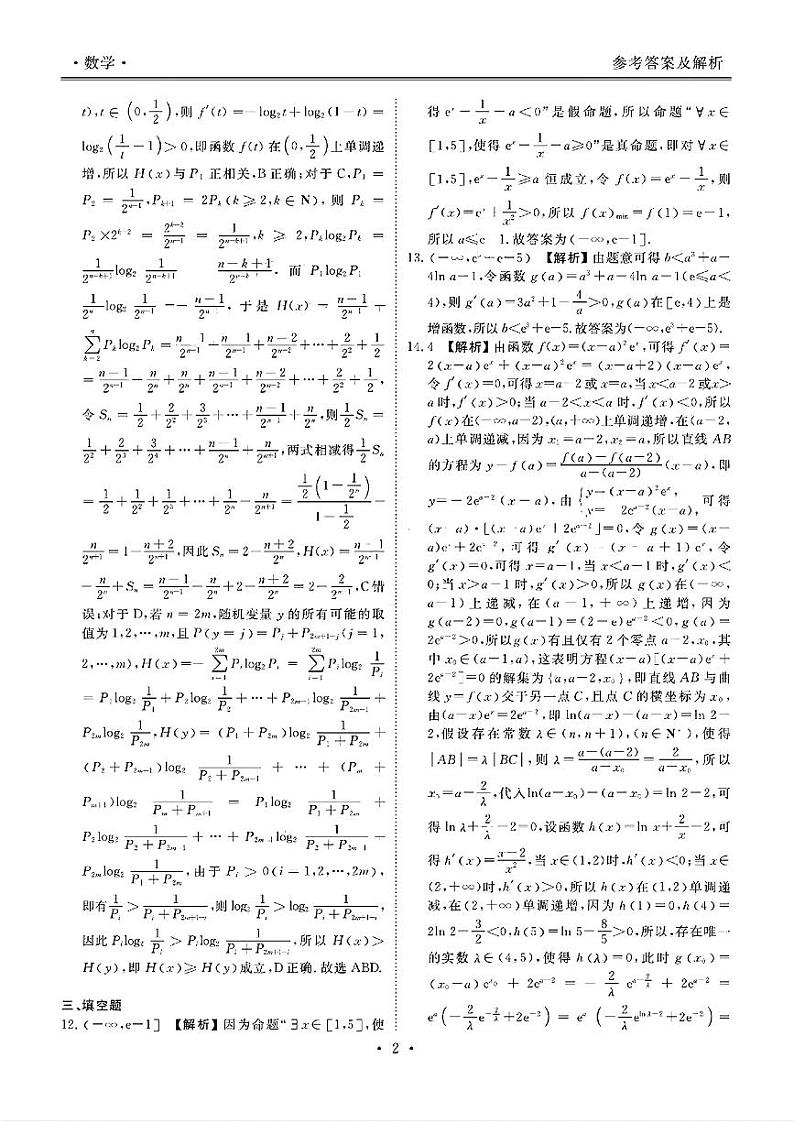 · 数学 ·
参考答案及解析
t),t∈(0,1/2),则 f′(t)=-log₂t+log₂(1-t)=
log₂(1/t-1)>0,即函数 f(t) 在(0,1/2)上单调递
增,所以 H(x)与 P₁ 正相关,B正确;对于 C,P₁=
P₂=1/2ⁿ⁻¹,Pₖ₊₁=2Pₖ(k⩾2,k∈N),则 Pₖ=
P₂×2ᵏ⁻²=2ᵏ⁻²/2ⁿ⁻¹=1/2ⁿ⁻ᵏ⁺¹,k⩾2,Pₖlog₂Pₖ=
1/2ⁿ⁻ᵏ⁺¹ log₂ 1/2ⁿ⁻ᵏ⁺¹ n-k+1/2ⁿ⁻ᵏ⁺¹.而 P₁log₂P₁
1/2ⁿ⁻¹ log₂ 1/2ⁿ⁻¹ n-1/2ⁿ⁻¹,于是 H(x)=n-1/2ⁿ⁻¹
∑PₖlogPₖ=n-1/2ⁿ⁻¹+n-1/2ⁿ⁻¹+n-2/2ⁿ⁻²+…+2/2²+1/2
=n-1/2ⁿ⁻¹-n/2ⁿ+n/2ⁿ+n-1/2ⁿ⁻¹+n-2/2ⁿ⁻²+…+2/2²+1/2,
令 Sₙ=1/2+2/2²+3/2³+…+n-1/2ⁿ⁻¹+n/2ⁿ,则1/2Sₙ=
1/2²+2/2³+3/2⁴+…+n-1/2ⁿ+n/2ⁿ⁺¹,两式相减得1/2Sₙ
=1/2+1/2²+1/2³+…+1/2ⁿ-n/2ⁿ⁺¹=1/2(1-1/2ⁿ)/(1-1/2)-
n/2ⁿ⁺¹=1-n+2/2ⁿ⁺¹,因此 Sₙ=2-n+2/2ⁿ,H(x)=n-1/2ⁿ⁻¹
-n/2ⁿ+Sₙ=n-1/2ⁿ⁻¹-n/2ⁿ+2-n+2/2ⁿ=2-2/2ⁿ,C错
误;对于 D,若 n=2m,随机变量 y 的所有可能的取
值为1,2,…,m,且 P(y=j)=Pⱼ+P₂ₘ₊₁₋ⱼ(j=1,
2,…,m),H(x)=-∑Pᵢlog₂Pᵢ=∑Pᵢlog₂ 1/Pᵢ
=P₁log₂ 1/P₁+P₂log₂ 1/P₂+…+P₂ₘ₋₁log₂ 1/P₂ₘ₋₁+
P₂ₘlog₂ 1/P₂ₘ,H(y)=(P₁+P₂ₘ)log₂ 1/(P₁+P₂ₘ)+
(P₂+P₂ₘ₋₁)log₂ 1/(P₂+P₂ₘ₋₁)+…+(Pₘ+
Pₘ₊₁)log₂ 1/(Pₘ+Pₘ₊₁)=P₁log₂ 1/(P₁+P₂ₘ)+
P₂log₂ 1/(P₂+P₂ₘ₋₁)+…+P₂ₘ₋₁log₂ 1/(P₂+P₂ₘ₋₁)+
P₂ₘlog₂ 1/(P₁+P₂ₘ),由于 Pᵢ>0(i=1,2,…,2m),
即有1/Pᵢ>1/(Pᵢ+P₂ₘ₊₁₋ᵢ),则log₂ 1/Pᵢ>log₂ 1/(Pᵢ+P₂ₘ₊₁₋ᵢ),
因此 Pᵢlog₂ 1/Pᵢ>Pᵢlog₂ 1/(Pᵢ+P₂ₘ₊₁₋ᵢ),所以 H(x)>
H(y),即 H(x)⩾H(y)成立,D正确.故选 ABD.
三、填空题
12.(-∞,e-1] 【解析】因为命题“∃x∈[1,5],使
得 eˣ-1/x-a<0”是假命题,所以命题“∀x∈
[1,5],使得 eˣ-1/x-a⩾0”是真命题,即对∀x∈
[1,5],eˣ-1/x⩾a 恒成立,令 f(x)=eˣ-1/x,则
f′(x)=eˣ+1/x²>0,所以 f(x)ₘᵢₙ=f(1)=e-1,
所以 a⩽e 1.故答案为(-∞,e-1].
13.(-∞,e³+e-5) 【解析】由题意可得 b<a³+a-
4ln a-1,令函数 g(a)=a³+a-4ln a-1(e⩽a<
4),则 g′(a)=3a²+1-4/a>0,g(a)在[e,4)上是
增函数,所以 b<e³+e-5.故答案为(-∞,e³+e-5).
14.4 【解析】由函数 f(x)=(x-a)²eˣ,可得 f′(x)=
2(x-a)eˣ+(x-a)²eˣ=(x-a+2)(x-a)eˣ,
令 f′(x)=0,可得 x=a-2或 x=a,当 x<a-2或 x>
a 时,f′(x)>0;当 a-2<x<a 时,f′(x)<0,所以
f(x)在(-∞,a-2),(a,+∞)上单调递增,在(a-2,
a)上单调递减,因为 x₁=a-2,x₂=a,所以直线 AB
的方程为 y-f(a)=f(a)-f(a-2)/a-(a-2)(x-a),即
y=-2eᵃ⁻²(x-a),由{y=(x-a)²eˣ, y= 2eᵃ⁻²(x-a),可得
(x a)·[(x a)eˣ+2eᵃ⁻²]=0,令 g(x)=(x-
a)eˣ+2eᵃ⁻²,可得 g′(x)=(x-a+1)eˣ,令
g′(x)=0,可得 x=a-1,当 x<a-1时,g′(x)<
0;当 x>a-1时,g′(x)>0,所以 g(x)在(-∞,
a-1)上递减,在(a-1,+∞)上递增,因为
g(a-2)=0,g(a-1)=(2-e)eᵃ⁻²<0,g(a)=
2eᵃ⁻²>0,所以g(x)有且仅有2个零点 a-2,x₀,其
中 x₀∈(a-1,a),这表明方程(x-a)[(x-a)eˣ+
2eᵃ⁻²]=0的解集为{a,a-2,x₀},即直线 AB 与曲
线 y=f(x)交于另一点 C,且点 C 的横坐标为 x₀,
由(a-x)eˣ=2eᵃ⁻²,即 ln(a-x)-(a-x)=ln 2-
2,假设存在常数 λ∈(n,n+1),(n∈N*),使得
|AB|=λ|BC|,则 λ=a-(a-2)/a-x₀=2/a-x₀,所以
x₀=a-2/λ,代入ln(a-x₀)-(a-x₀)=ln 2-2,可
得 ln λ+2/λ-2=0,设函数 h(x)=ln x+2/x-2,可
得 h′(x)=x-2/x²,当 x∈(1,2)时,h′(x)<0;当 x∈
(2,+∞)时,h′(x)>0,所以 h(x)在(1,2)单调递
减,在(2,+∞)单调递增,因为 h(1)=0,h(4)=
2ln 2-3/2<0,h(5)=ln 5-8/5>0,所以,存在唯一
的实数 λ∈(4,5),使得 h(λ)=0,此时 g(x₀)=
(x₀-a)eˣ⁰+2eᵃ⁻²=-2/λ eᵃ⁻²/λ+2eᵃ⁻²=
eᵃ(-2/λ e⁻²/λ+2e⁻²)=eᵃ(-2/λ e^(ln λ-2)+2e⁻²)=
· 2 ·